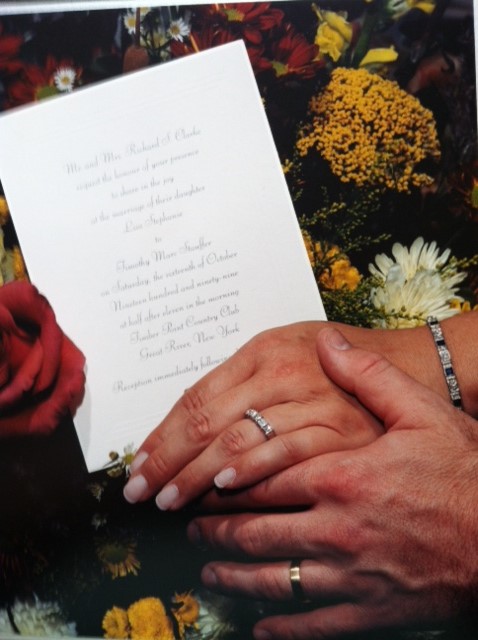 Mr. and Mrs. Richard S. Clarke
request the honour of your presence
to share in the joy
at the marriage of their daughter
Lisa Stephanie
to
Timothy Marc Stauffer
on Saturday, the sixteenth of October
Nineteen hundred and ninety-nine
at half after eleven in the morning
Timber Point Country Club
Great River, New York
Reception immediately following